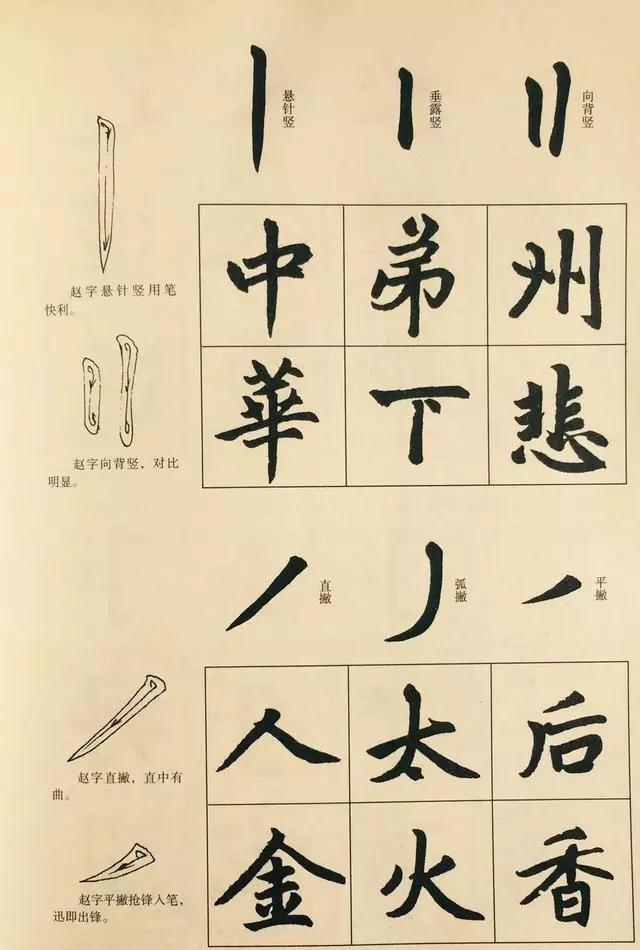 悬针竖
垂露竖
向背竖
赵字悬针竖用笔
快利。
中 弟 州
華 下 悲
赵字向背竖，对比
明显。
直撇
弧撇
平撇
赵字直撇，直中有
曲。
人 太 后
金 火 香
赵字平撇抢锋入笔，
迅即出锋。